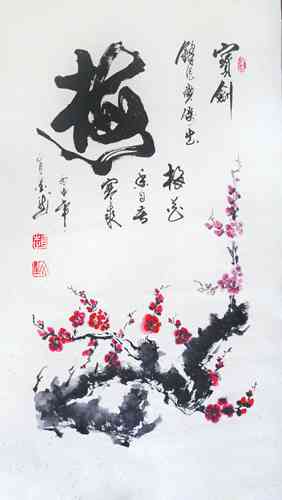 寶劍
鋒從磨礪出
梅花
香自苦
寒來
梅
年